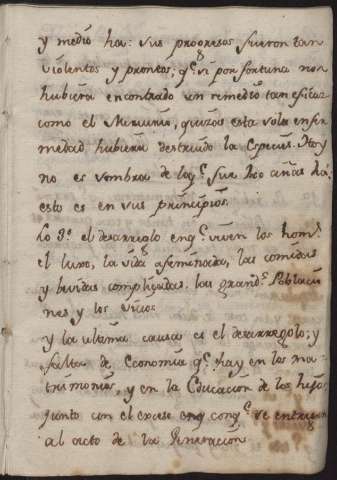 y medio ha: sus progresos fueron tan
violentos y prontos, q.e si por fortuna no se
hubiera encontrado un remedio tan eficaz
como el Mercurio, quizas esta sola enfer
medad hubiera destruido la Especie. Hoy
no es sombra de lo q.e fue 200 años há
esto es en sus principios.
Lo 3.º el desarreglo en q.e viven los hom.s
el luxo, la vida afeminada, las comidas
y bevidas complicadas. las grand.s Poblacio
nes y los Vicios
y la ultima causa es el desarreglo; y
falta de Economia q.e hay en los ma-
trimonios, y en la Educacion de los hijos,
junto con el exceso con q.e se entregan
al acto de la Generacion